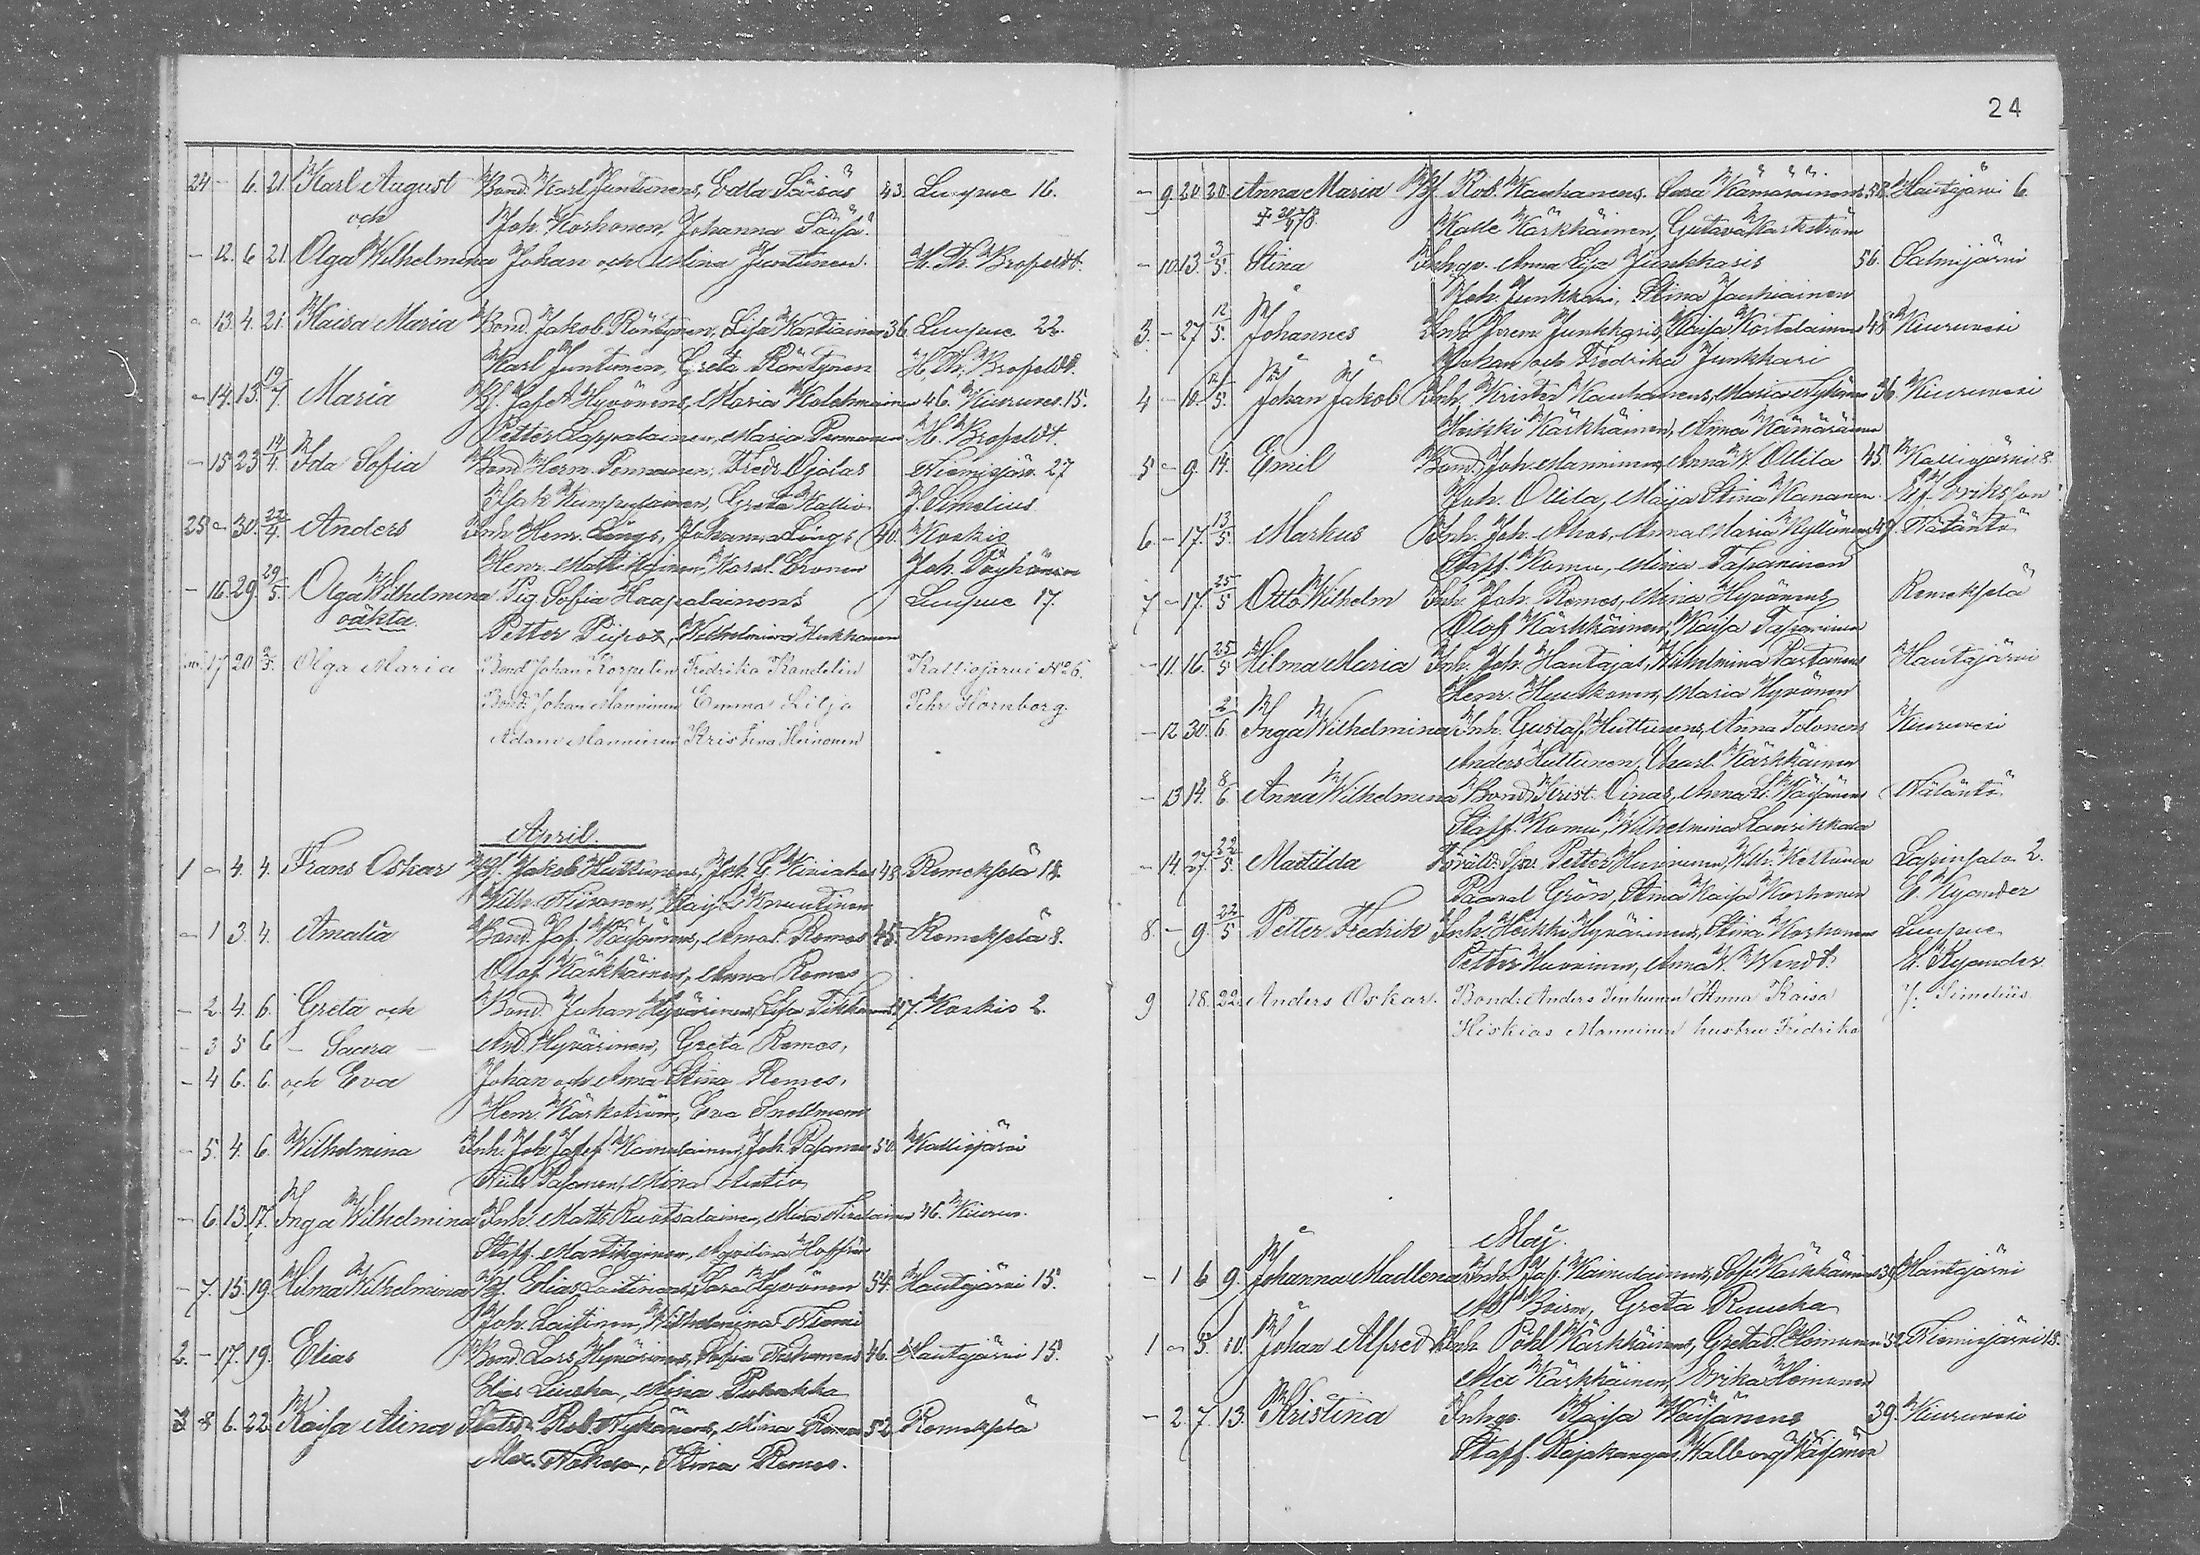 24 - 6. 21. Karl August Bond. Karl Juntunens, Edla Säisäs 43. Luupue 16.
och Joh. Korhonen, Johanna Säisä.
- 12. 6 21. Olga Wilhelmina Johan och Mina Juntunen. H. Th. Brofeldt.
- 13. 4. 21. Kaisa Maria Bond. Jakob Röntynen, Lisa Kastiainen 36. Luupue 22.
Karl Juntunen, Greta Röntynen H. Th. Brofeldt.
- 14. 13. 19/4 Maria Josef Hyvönens, Maria Kolehmainen 46. Kiuruves. 15.
Petter Lappalainen, Maria Permanen H. Brofeldt.
- 15 23 14/4. Ida Sofia Bond. Herm. Pennanen, Fredr. Ojalas Niemisjärv. 27
Isak Kumpulainen, Greta Kallio J. Simelius
25 - 30. 22/4. Anders Inh. Henr. Längs, Johanna Längs 40. Koskis
Henr. Matti Karol. Cronen Joh. Pöyhönen
- 16. 29. 29/5. Olga Wilhelmina Pig. Sofia Haapalainens Luupue 17.
oäkta. Petter Piipox, Wilhelmina Huskonen
17 20 2/5. Olga Maria Bond Johan Korpelin Fredrika Kandelin Kalliojärvi No 6.
Bond. Johan Manninen Emma Lilja Pehr Hornborg.
Adam Manninen Kristina Heinonen
April.
1 - 4. 4. Frans Oskar Jakob Huttunens, Joh. G. 48. Remekselä 14.
Wilh. Niiranen, Kaisa
- 1 3. 4. Amalia Bond. Jos. Väisänens, Amal. Remes 45. Remekselä 8.
Olof Kärkkäinen, Anna Remes
- 2. 4. 6. Greta och Bond. Johan Hyvärinen, Lisa Tikkanen 47. Koskis 2.
- 3 5 6 - Saara - And. Hyvärinen, Greta Remes,
- 4 6. 6. och Eva Johan och Anna Stina Remes,
Henr. Karkström, Eva Snellman
- 5. 4. 6. Wilhelmina Inh. Joh. Josef Kainulainen, Joh. Pasanen 50. Kalliojärvi
Niils Pasanen, Mina
- 6. 13. 17. Inga Wilhelmina Inh. Matts Ruotsalainen, Mina 46. Kiuruv.
Staff. Martikainen, Hoffrén
- 7. 15. 19. Hilma Wilhelmina Elias Laitinen, Sara Hyvönen 54. Hautajärvi 15.
Joh. Laitinen, Wilhelmina Niemi
2. - 17. 19. Elias Bond. Lars Hyvärinens, Sofia Tiskanens 46. Hautajärvi 15.
Elias Liuska, Mina Puhakka
3 - 6. 22. Kaisa Alina Rob. Nykänens, Mina Remes 52. Remekselä
Max. Stina Remes.
24
- 9. 24. 20. Anna Maria Rob. Kauhanens. Sara Kämäräinens 52. Hautajärvi 6.
Kalle Kärkkäinen, Gustava Karkström
- 10. 13. 3/5. Stina Inhqv. Anna Lisa Junkkaris 56. Salmijärvi
Joh. Junkkari, Stina Jauhiainen
3. - 27. 12/5. Johannes Inh. Jerem. Junkkaris, Kaisa Kortelainens 48. Kiuruvesi
Johan och Fredrika Junkkari
4 - 10. 12/5. Johan Jakob Inh. Krister Kauhanens, Maria Nykänen 36. Kiuruvesi
Heikki Kärkkäinen, Anna Kämäräinen
5 - 9. 14. Emil Bond. Joh. Manninen, Anna W. Ollila 45. Kalliojärvi 8.
Joh. Ollila, Maija Stina Kananen Eriksson
6. - 17. 13/5. Markus Inh. Joh. Ahos, Anna Maria Kyllönen 49. Näläntö
Staff. Komu, Mina Tapaninen
7 - 17. 25/5 Otto Wilhelm Inh. Joh. Remes, Mina Hyvönens Remekselä
Olof Kärkkäinen, Kaisa Tapaninen
- 11. 16. 25/5 Hilma Maria Inh. Joh. Hautajas, Wilhelmina Partanens Hautajärvi
Henr. Huskonen, Maria Hyvönen
- 12 30. 2/6. Inga Wilhelmina Inh. Gustaf Huttunens, Anna Tolonens Kiuruvesi
Anders Huttunen, Charl. Kärkkäinen
- 13 14. 8/6. Anna Wilhelmina Bond. Krist. Oinas, Anna L. Väisänens Näläntö
Staff. Komu, Wilhelmina Lanrikkala
- 14. 27. 22/5. Mattilda Petter Huvinen, Kettunen Lapinsalo 2.
Paavel Grön, Stina Kaisa Korhonen E. Kyander
8. - 9. 22/5 Petter Fredrik Inh. Heikki Hyvärinens, Stina Korhonen Luupue
Petter Huvinen, Anna W. Wendt. E. Kyander
9 18. 22. Anders Oskar. Bond: Anders Tenhunen Anna Kaisa J. Simelius
Hiskias Manninen hustru Fredrika
Maj.
- 1 6 9. Johanna Madlena Inh. Jos. Kainulainens, Sofia Kärkkäinens 39. Hautajärvi
Greta Ruuska
1 - 5. 10. Johan Alfred Inh. Påhl Kärkkäinens, Greta S. Heimonen 52. Niemisjärvi 15.
Max Kärkkäinen, Erika Heimonen
- 2. 7. 13. Kristina Inhqv. Kaisa Väisänens 39. Kiuruvesi
Staff. Rajakangas, Walborg Väisänen